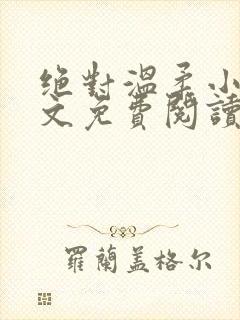 绝對溫柔小
文免費閱讀
羅蘭盖格尔